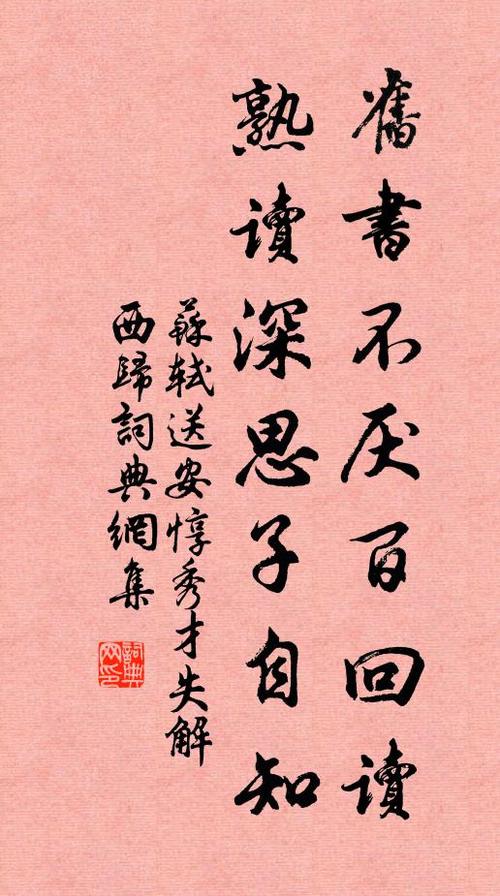 舊書不厌百回讀
熟读深思子自知
蘇轼送安惇秀才失解
西歸詞典網集
詞典网印